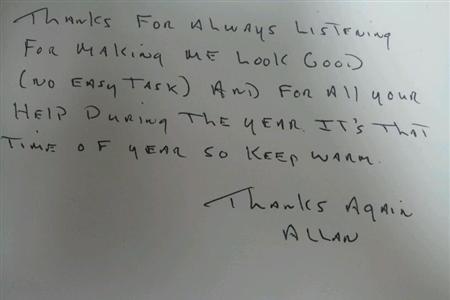 Thanks For Always Listening
For Making Me Look Good
(No Easy Task) And For All your
Help During The Year. It's That
Time of year so Keep warm.
Thanks Again
Allan